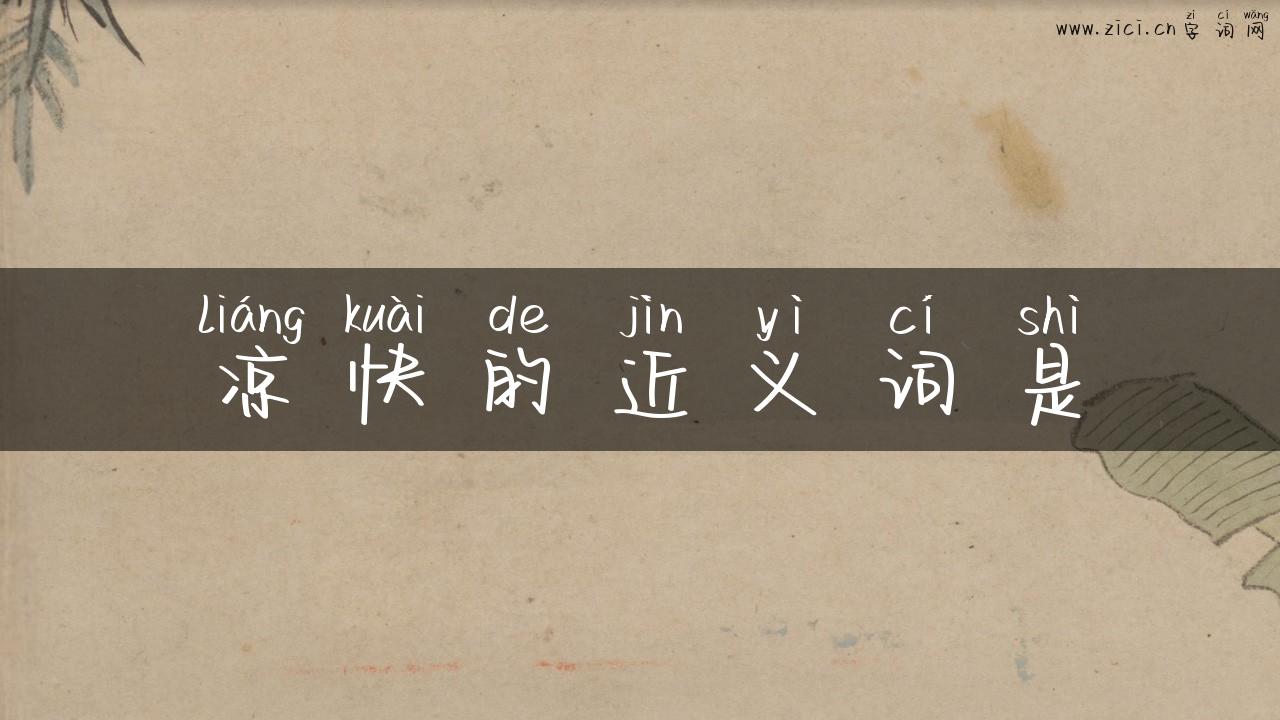 zì cí wǎng
www.zici.cn 字词网
liáng kuài de jìn yì cí shì
凉快的近义词是